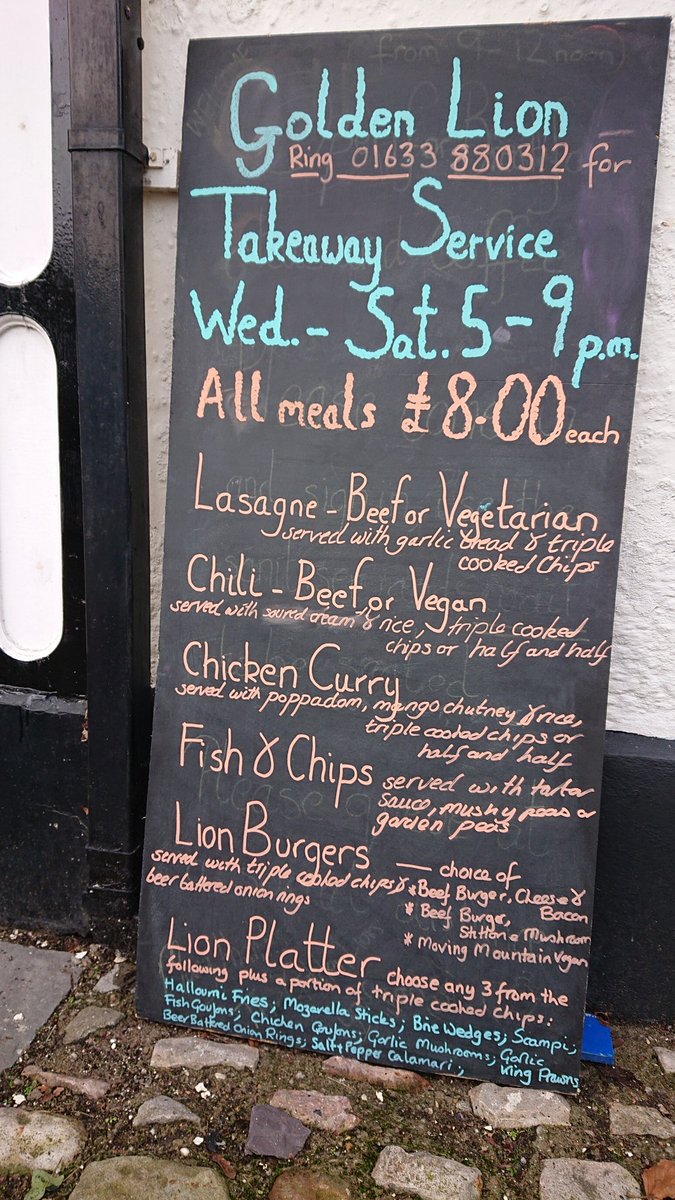 (from 9-12 noon)
Golden Lion
Ring 01633 880312 for
Takeaway Service
Wed.- Sat. 5-9 p.m.
All meals £8.00 each
Lasagne - Beef or Vegetarian
served with garlic bread & triple
cooked Chips
Chili - Beef or Vegan
served with soured cream & rice, triple cooked
chips or half and half
Chicken Curry
served with poppadom, mango chutney & rice,
triple cooked chips or
half and half
Fish & Chips served with tartar
sauce, mushy peas or
garden peas
Lion Burgers — choice of
served with triple cooked chips &
beer battered onion rings
* Beef Burger, Cheese &
Bacon
* Beef Burger,
Stilton & Mushroom
* Moving Mountain Vegan
Lion Platter choose any 3 from the
following plus a portion of triple cooked chips:
Halloumi Fries; Mozarella Sticks; Brie Wedges; Scampi;
Fish Goujons; Chicken Goujons; Garlic Mushrooms; Garlic
King Prawns
Beer Battered Onion Rings; Salt & Pepper Calamari;